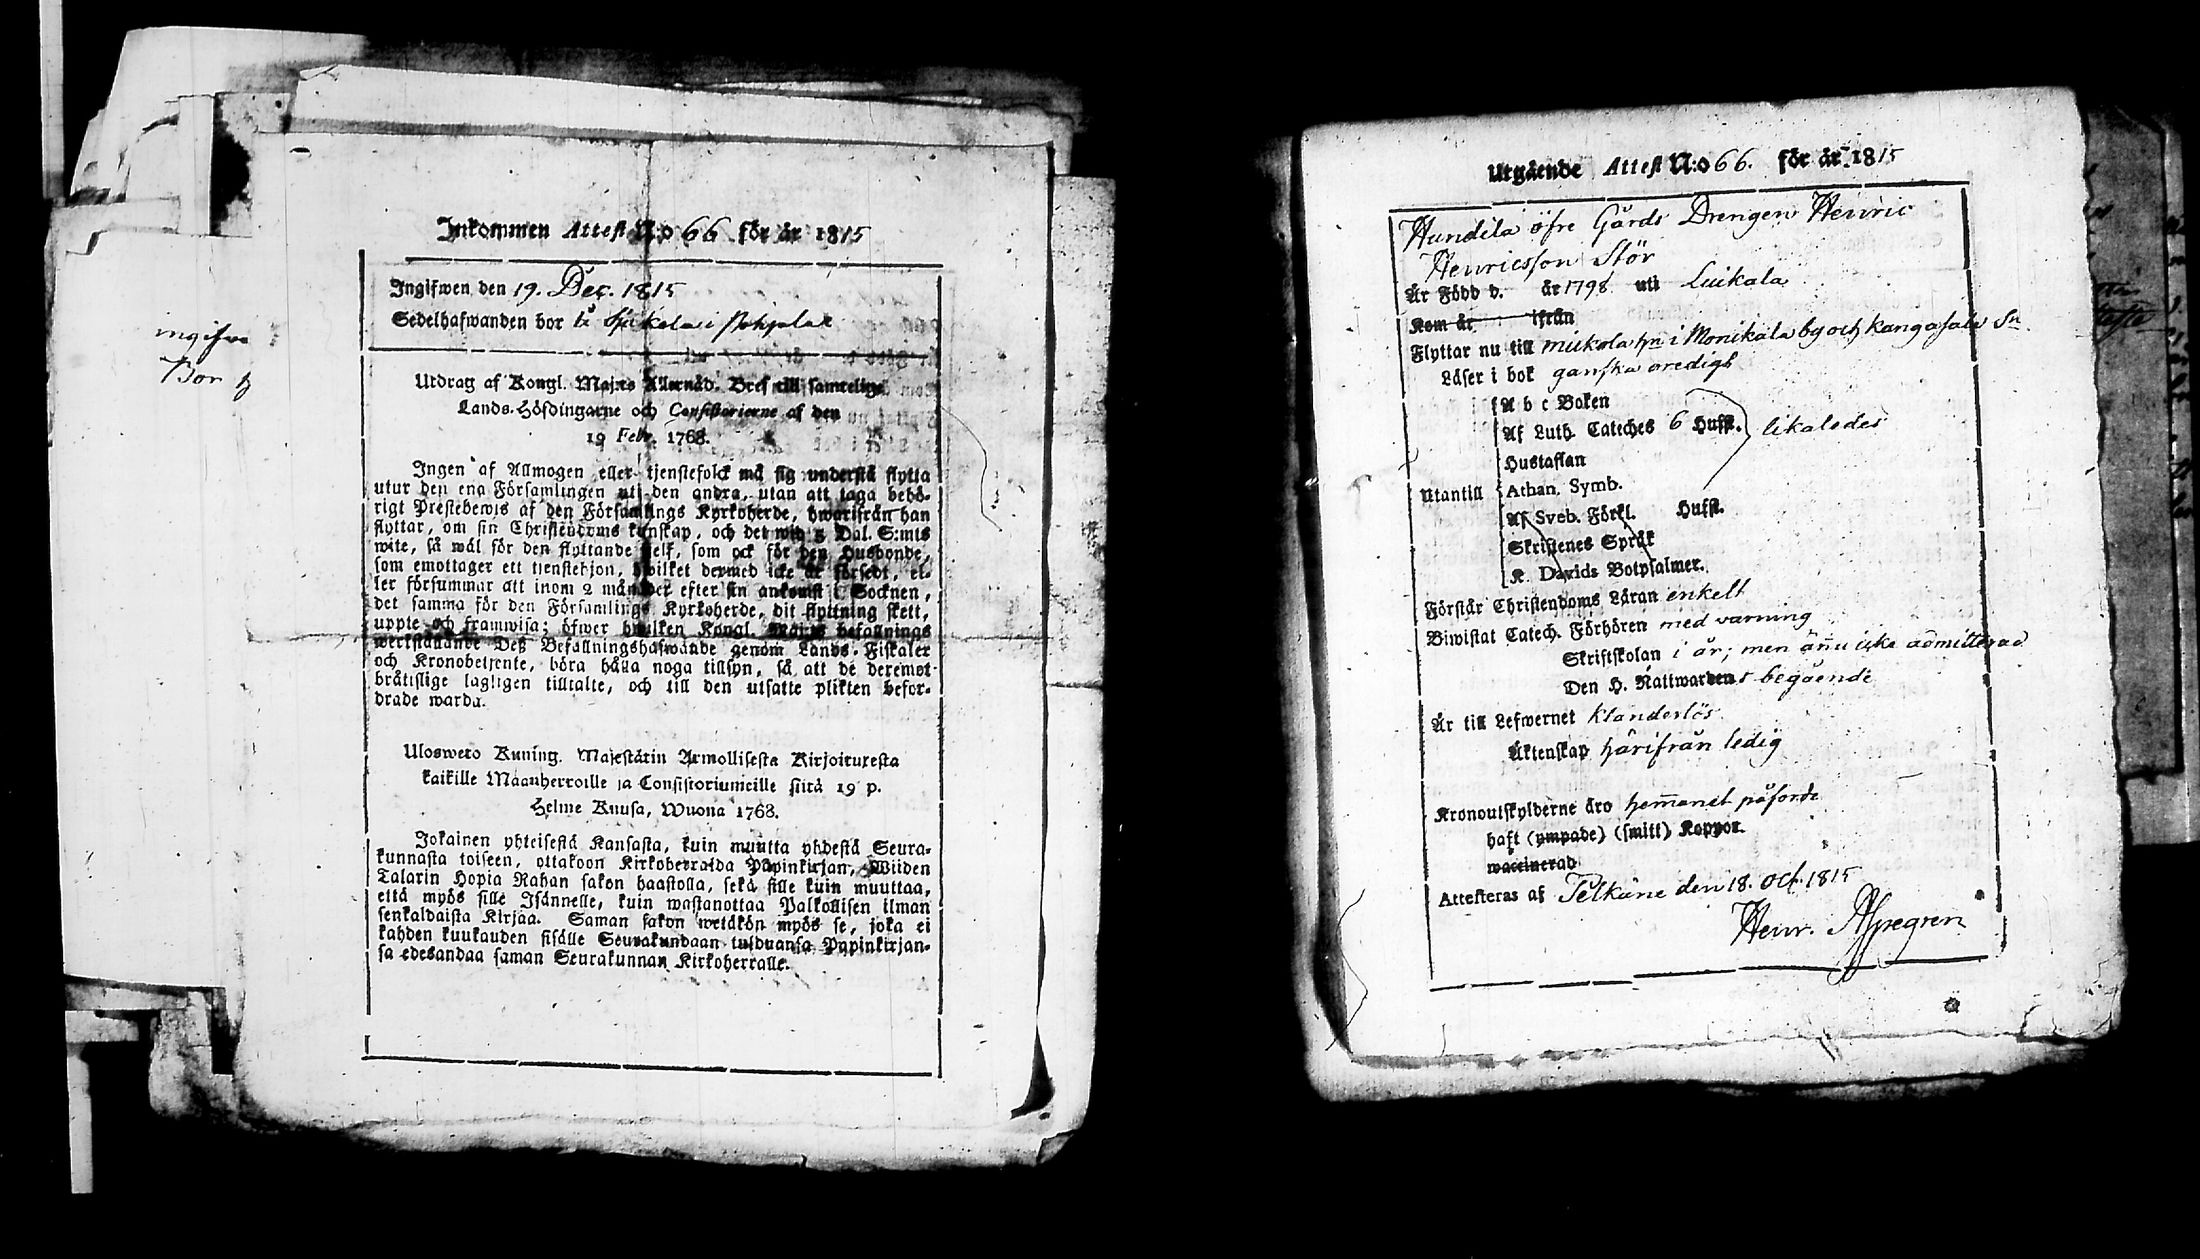 Inkommen Attest N:o 66 för år 1815
Ingifwen den 19. Dec. 1815
Sedelhafwanden bor i Pohjola
ingifwe
Bor
Utdrag af Kongl. Maj:ts Allernåd. Bref till samtelige
Lands-Höfdingarne och Consistorierne af den
19 Febr. 1768.
Ingen af Allmogen eller tjenstefolck må sig understå flytta
utur den ena Församlingen uti den andra, utan att taga behö-
rigt Prestebewis af den Församlings Kyrkoherde, hwarifrån han
flyttar, om sin Christendoms kunskap, och det wid 5 Dal. S:mts
wite, så wäl för den flyttande self, som ock för den Husbonde,
som emottager ett tjenstehjon, hwilket dermed icke är försedt, el-
ler försummar att inom 2 månader efter sin ankomst i Socknen,
det samma för den Församlings Kyrkoherde, dit flyttning skett,
uppte och framwisa; öfwer hwilken Kongl. Maj:ts befallnings
werkställande Deß Befallningshafwande genom Lands-Fiskaler
och Kronobetjente, böra hålla noga tillsyn, så att de deremot
bråttslige lagligen tilltalte, och till den utsatte plikten befor-
drade warda.
Uloswero Kuning. Majestätin Armollisesta Kirjoituxesta
kaikille Maanherroille ja Consistoriumeille siitä 19 p.
Helme Kuusa, Wuona 1768.
Jokainen yhteisestä Kansasta, kuin muutta yhdestä Seura-
kunnasta toiseen, ottakoon Kirkoherralda Papinkirjan, Wiiden
Talarin Hopia Rahan sakon haastolla, sekä sille kuin muuttaa,
että myös sille Isännelle, kuin wastanottaa Palkollisen ilman
senkaldaista Kirjaa. Saman sakon wetäkön myös se, joka ei
kahden kuukauden sisälle Seurakundaan tulduansa Papinkirjan-
sa edesandaa saman Seurakunnan Kirkoherralle.
Utgående Attest N:o 66. för år 1815
Hundila öfre Gårds Drengen Henric
Henricsson Stör
Är Född d. år 1798 uti Luikala
Kom år ifrån
Flyttar nu till mukola hn i Monikala by och Kangasala Sn
Läser i bok ganska oredigt
A b c Boken
Af Luth. Cateches 6 Hufst. likaledes
Hustaflan
Utantill Athan. Symb.
Af Sveb. Förkl. Hufst.
Skriftenes Språk
K. Davids Botpsalmer.
Förstår Christendoms Läran enkelt
Biwistat Catech. Förhören med varning
Skriftskolan i år; men ännu icke admitterad
Den H. Nattwardens begående
Är till Lefwernet klanderlös
Äktenskap härifrån ledig
Kronoutskylderne äro hemanet påförde
haft (ympade) (smitt) Koppor.
waccinerad
Attesteras af Pelkäne den 18. Oct. 1815
Henr. Aspegren